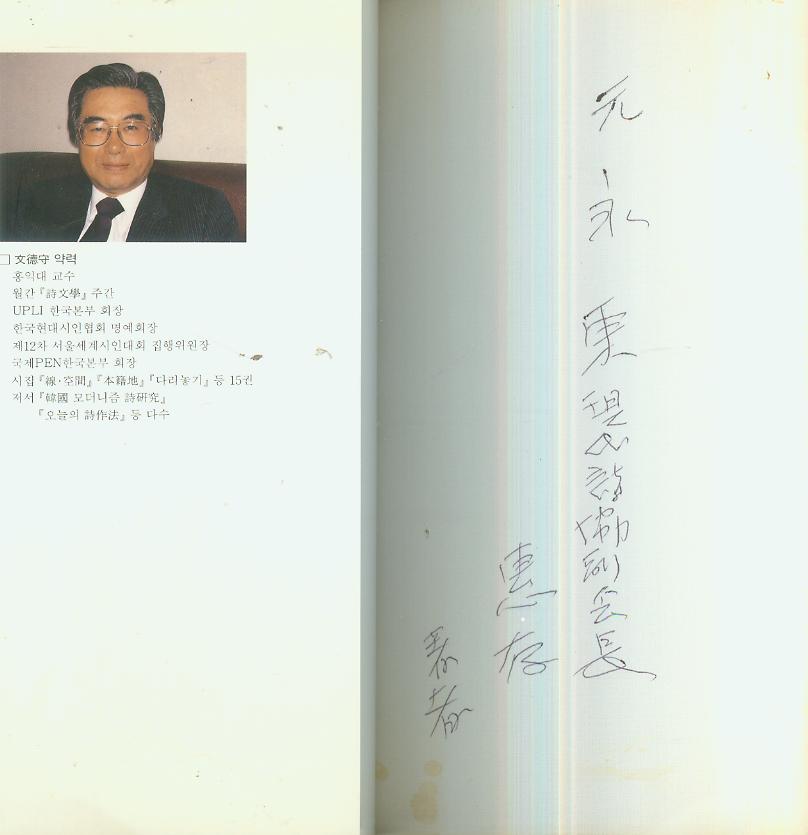 □ 文德守 약력
홍익대 교수
월간 『詩文學』 주간
UPLI 한국본부 회장
한국현대시인협회 명예회장
제12차 서울세계시인대회 집행위원장
국제PEN한국본부 회장
시집 『線·空間』 『本籍地』 『다리놓기』 등 15권
저서 『韓國 모더니즘 詩硏究』
『오늘의 詩作法』 등 다수
元永東 現代詩協副会長
惠存